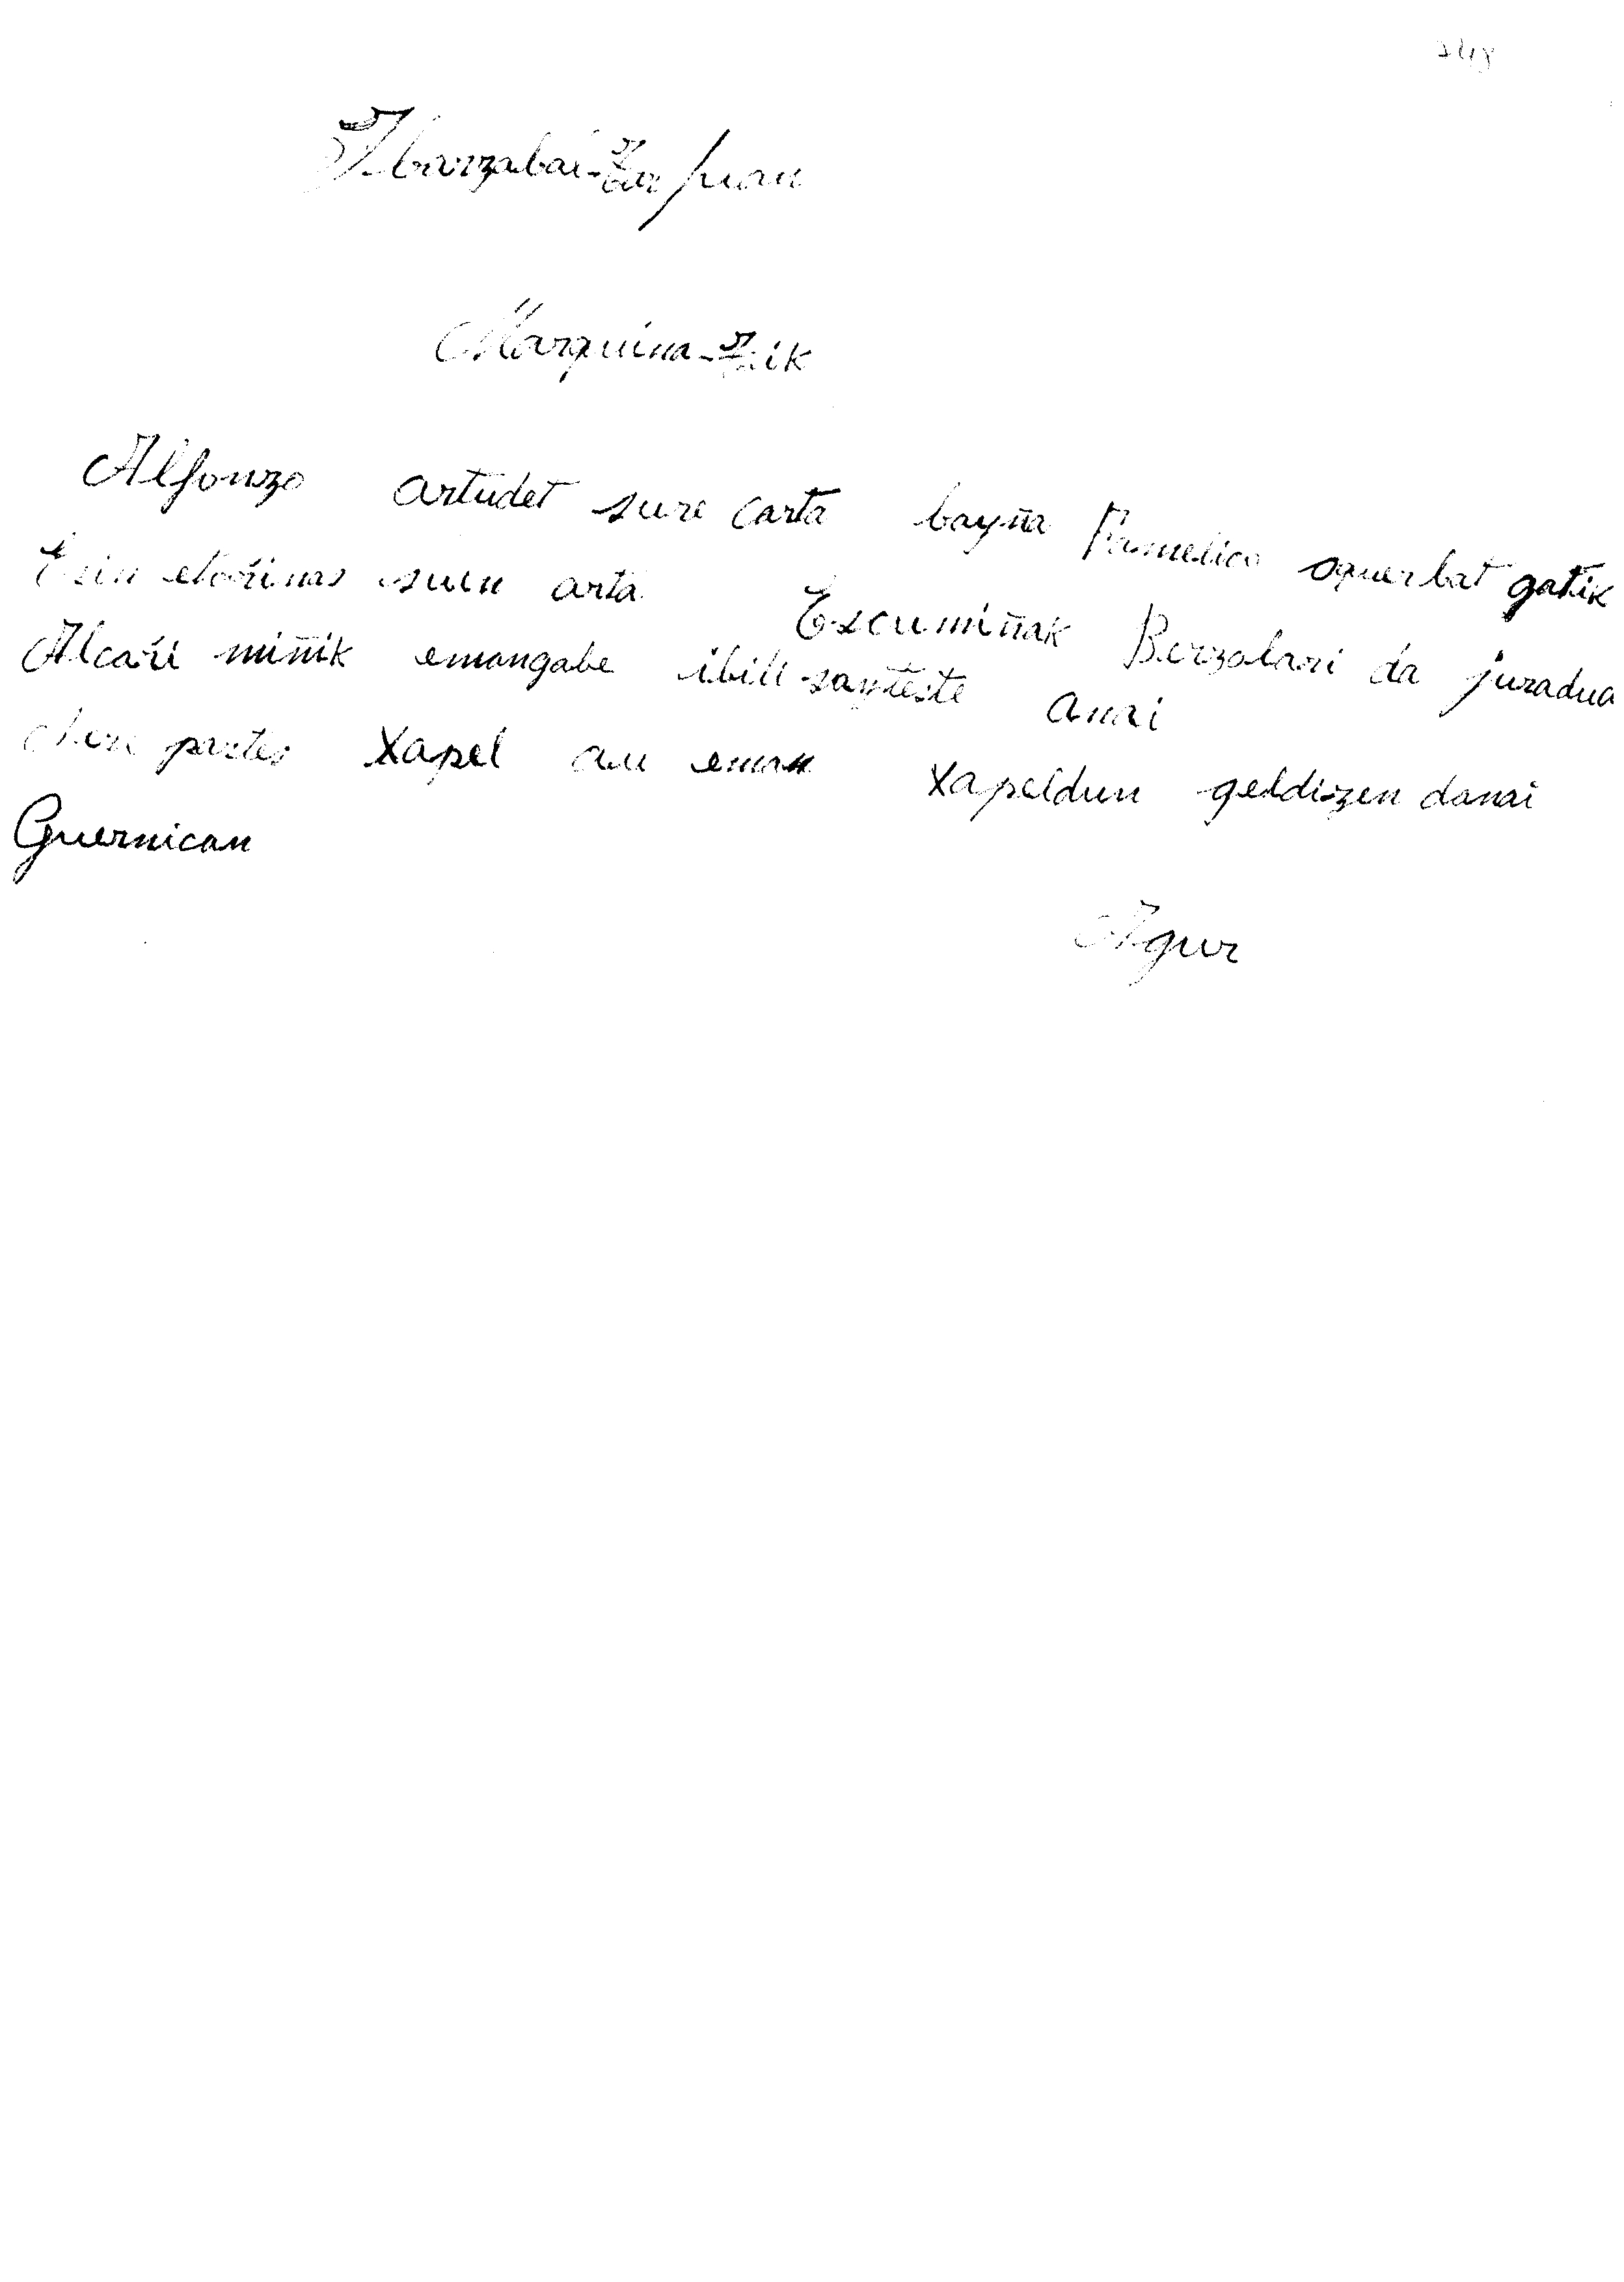 Ibarzabal-Zar Juan
Marquina-Tik
Alfonzo artudet sure carta bayña Famelico oquerbat gatik
Esin etoŕinas suen arta Escumiñak Berzolari da juradua
Alcaŕi miñik emangabe ibili sayteste anai
Nere partes Xapel au eman Xapeldun geldizen danai
Guernican
Agur